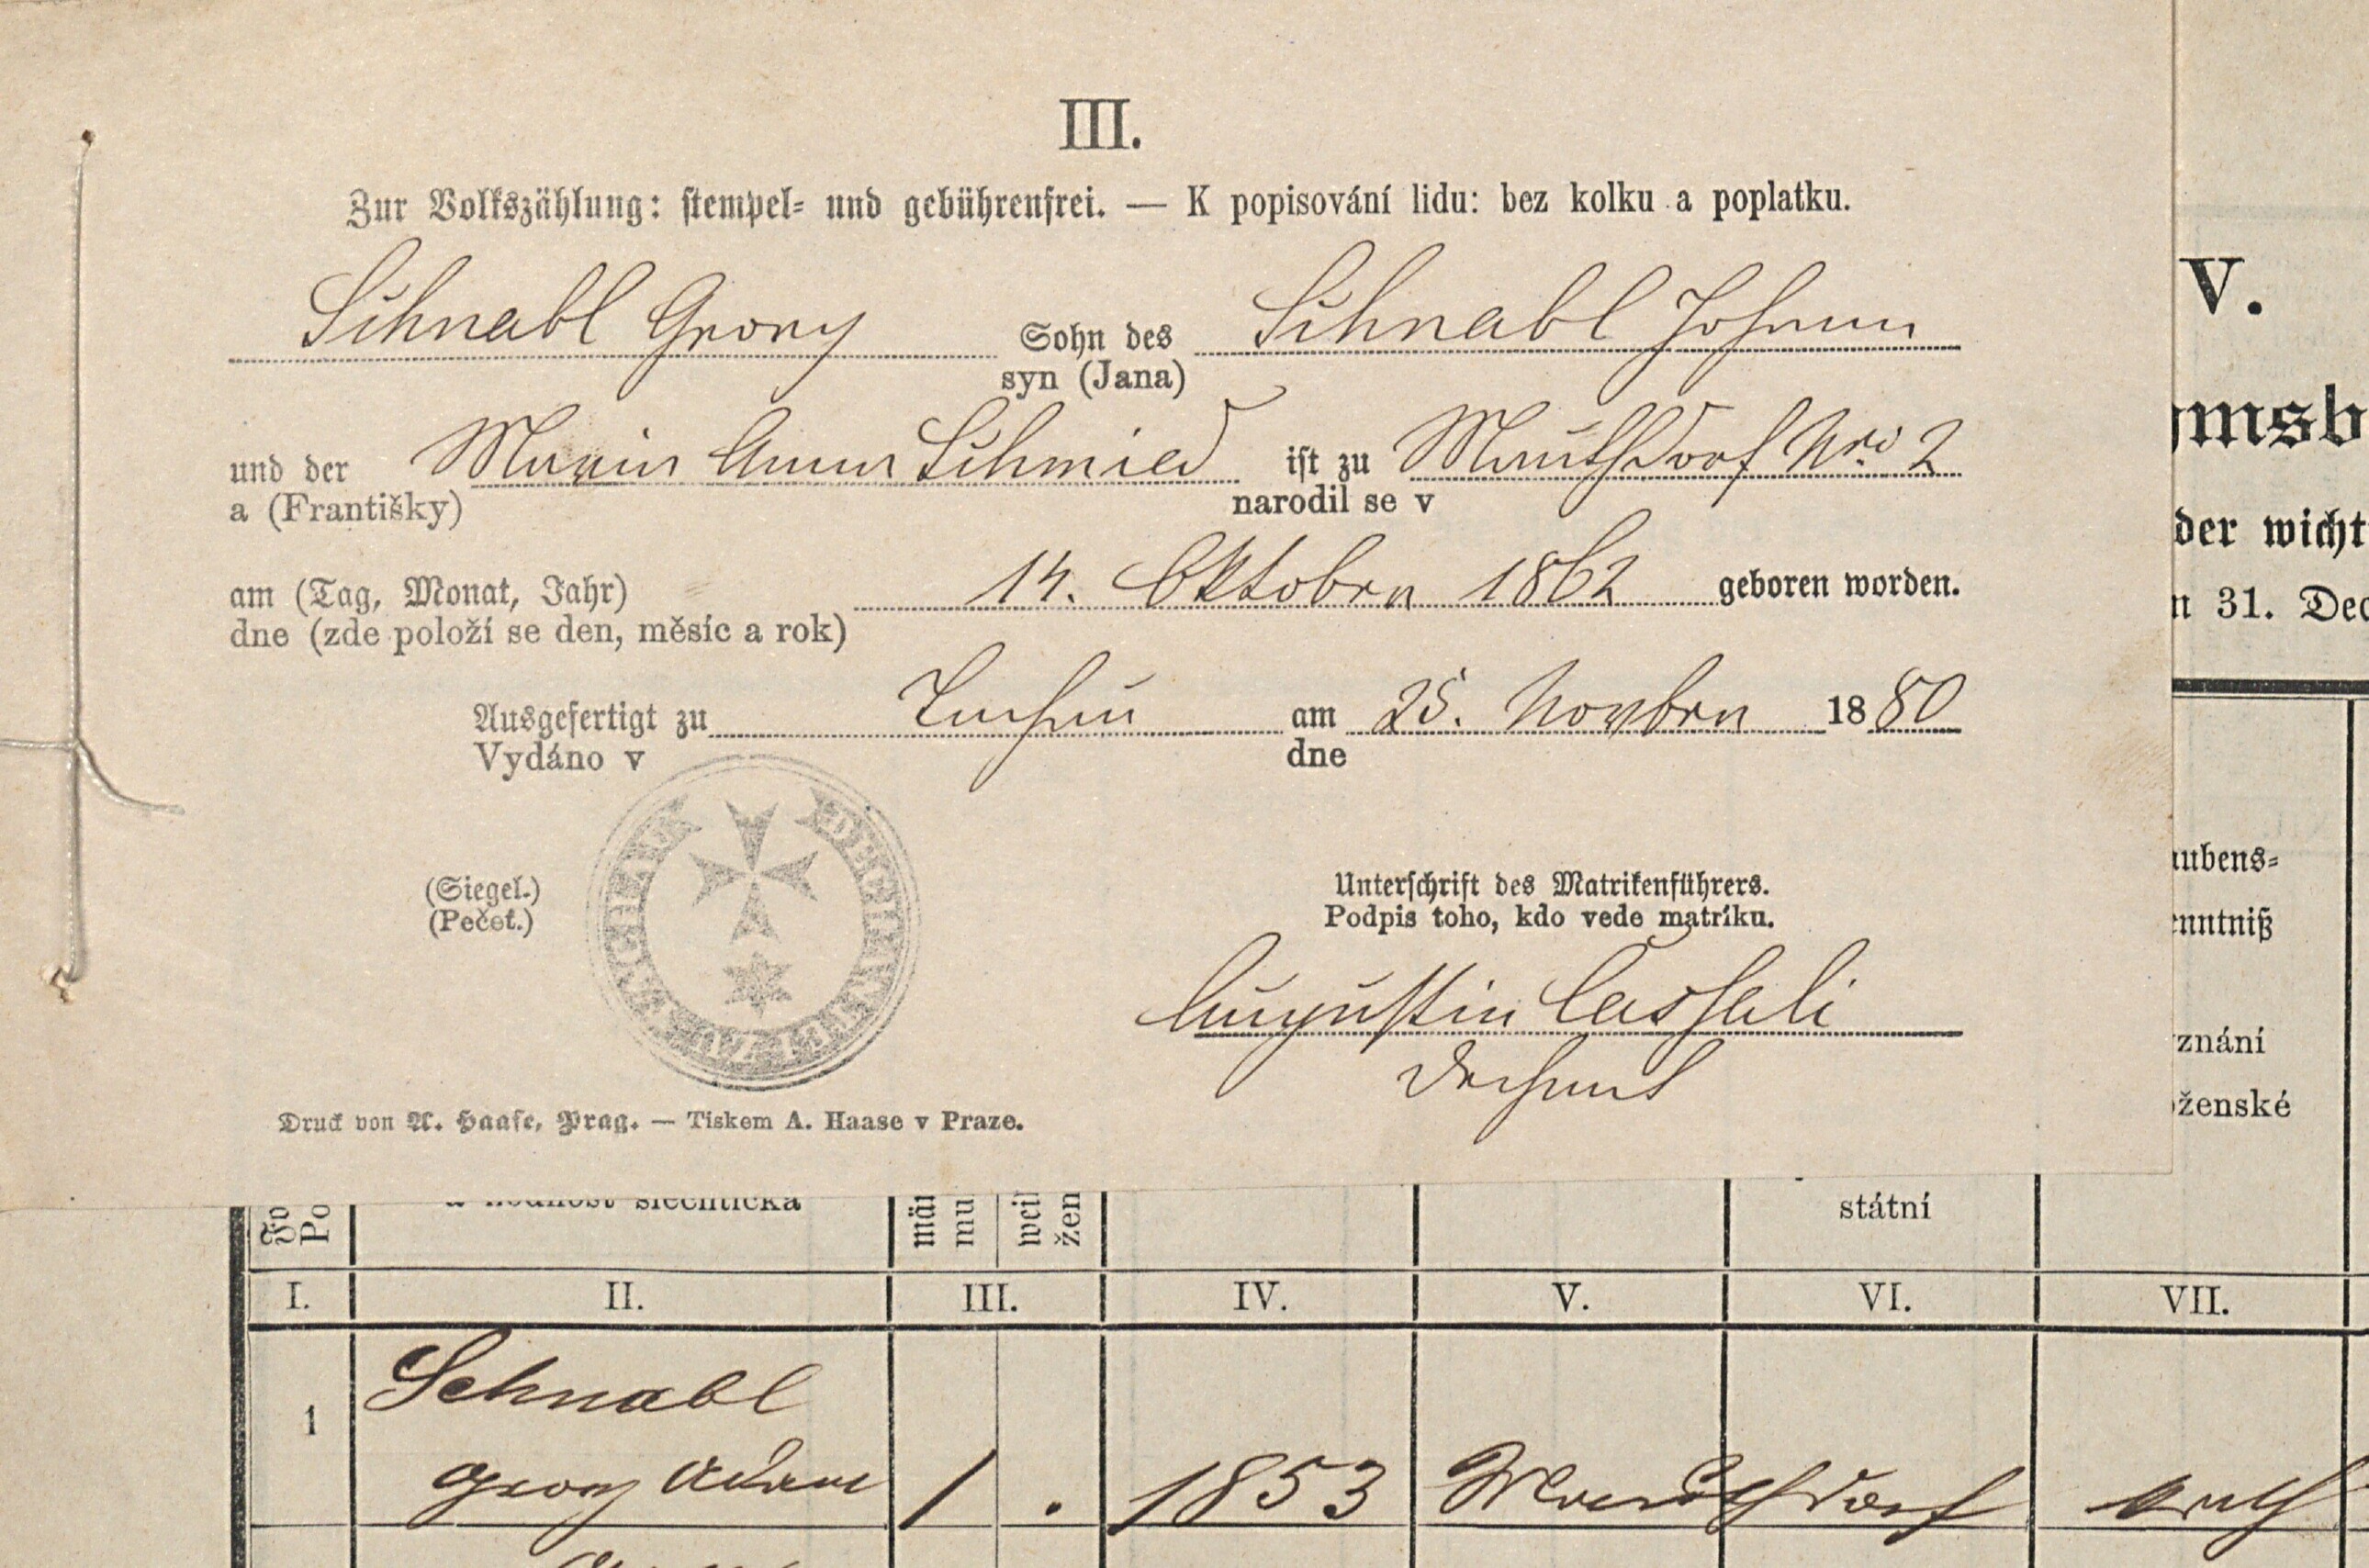 III.
Zur Volkszählung: stempel- und gebührenfrei. — K popisování lidu: bez kolku a poplatku.
Schnabl Georg Sohn des Schnabl Johann
syn (Jana)
und der Maria Anna Schmied ist zu Mauthdorf Nro 2
a (Františky) narodil se v
am (Tag, Monat, Jahr) 14. Oktober 1862 geboren worden.
dne (zde položí se den, měsíc a rok)
Ausgefertigt zu Tachau am 25. Novber 1880
Vydáno v dne
(Siegel.)
(Pečet.)
Unterschrift des Matrikenführers.
Podpis toho, kdo vede matríku.
Augustin Casseli
Dechant
Druck von A. Haase, Prag. — Tiskem A. Haase v Praze.
V.
msb
der wicht
n 31. Dec
ubens-
nntniß
znání
ženské
a hodnost šlechtická
män
mu
weil
žen
Po
státní
I. II. III. IV. V. VI. VII.
1 Schnabl
Georg Adam 1 . 1853 Mauthdorf kath